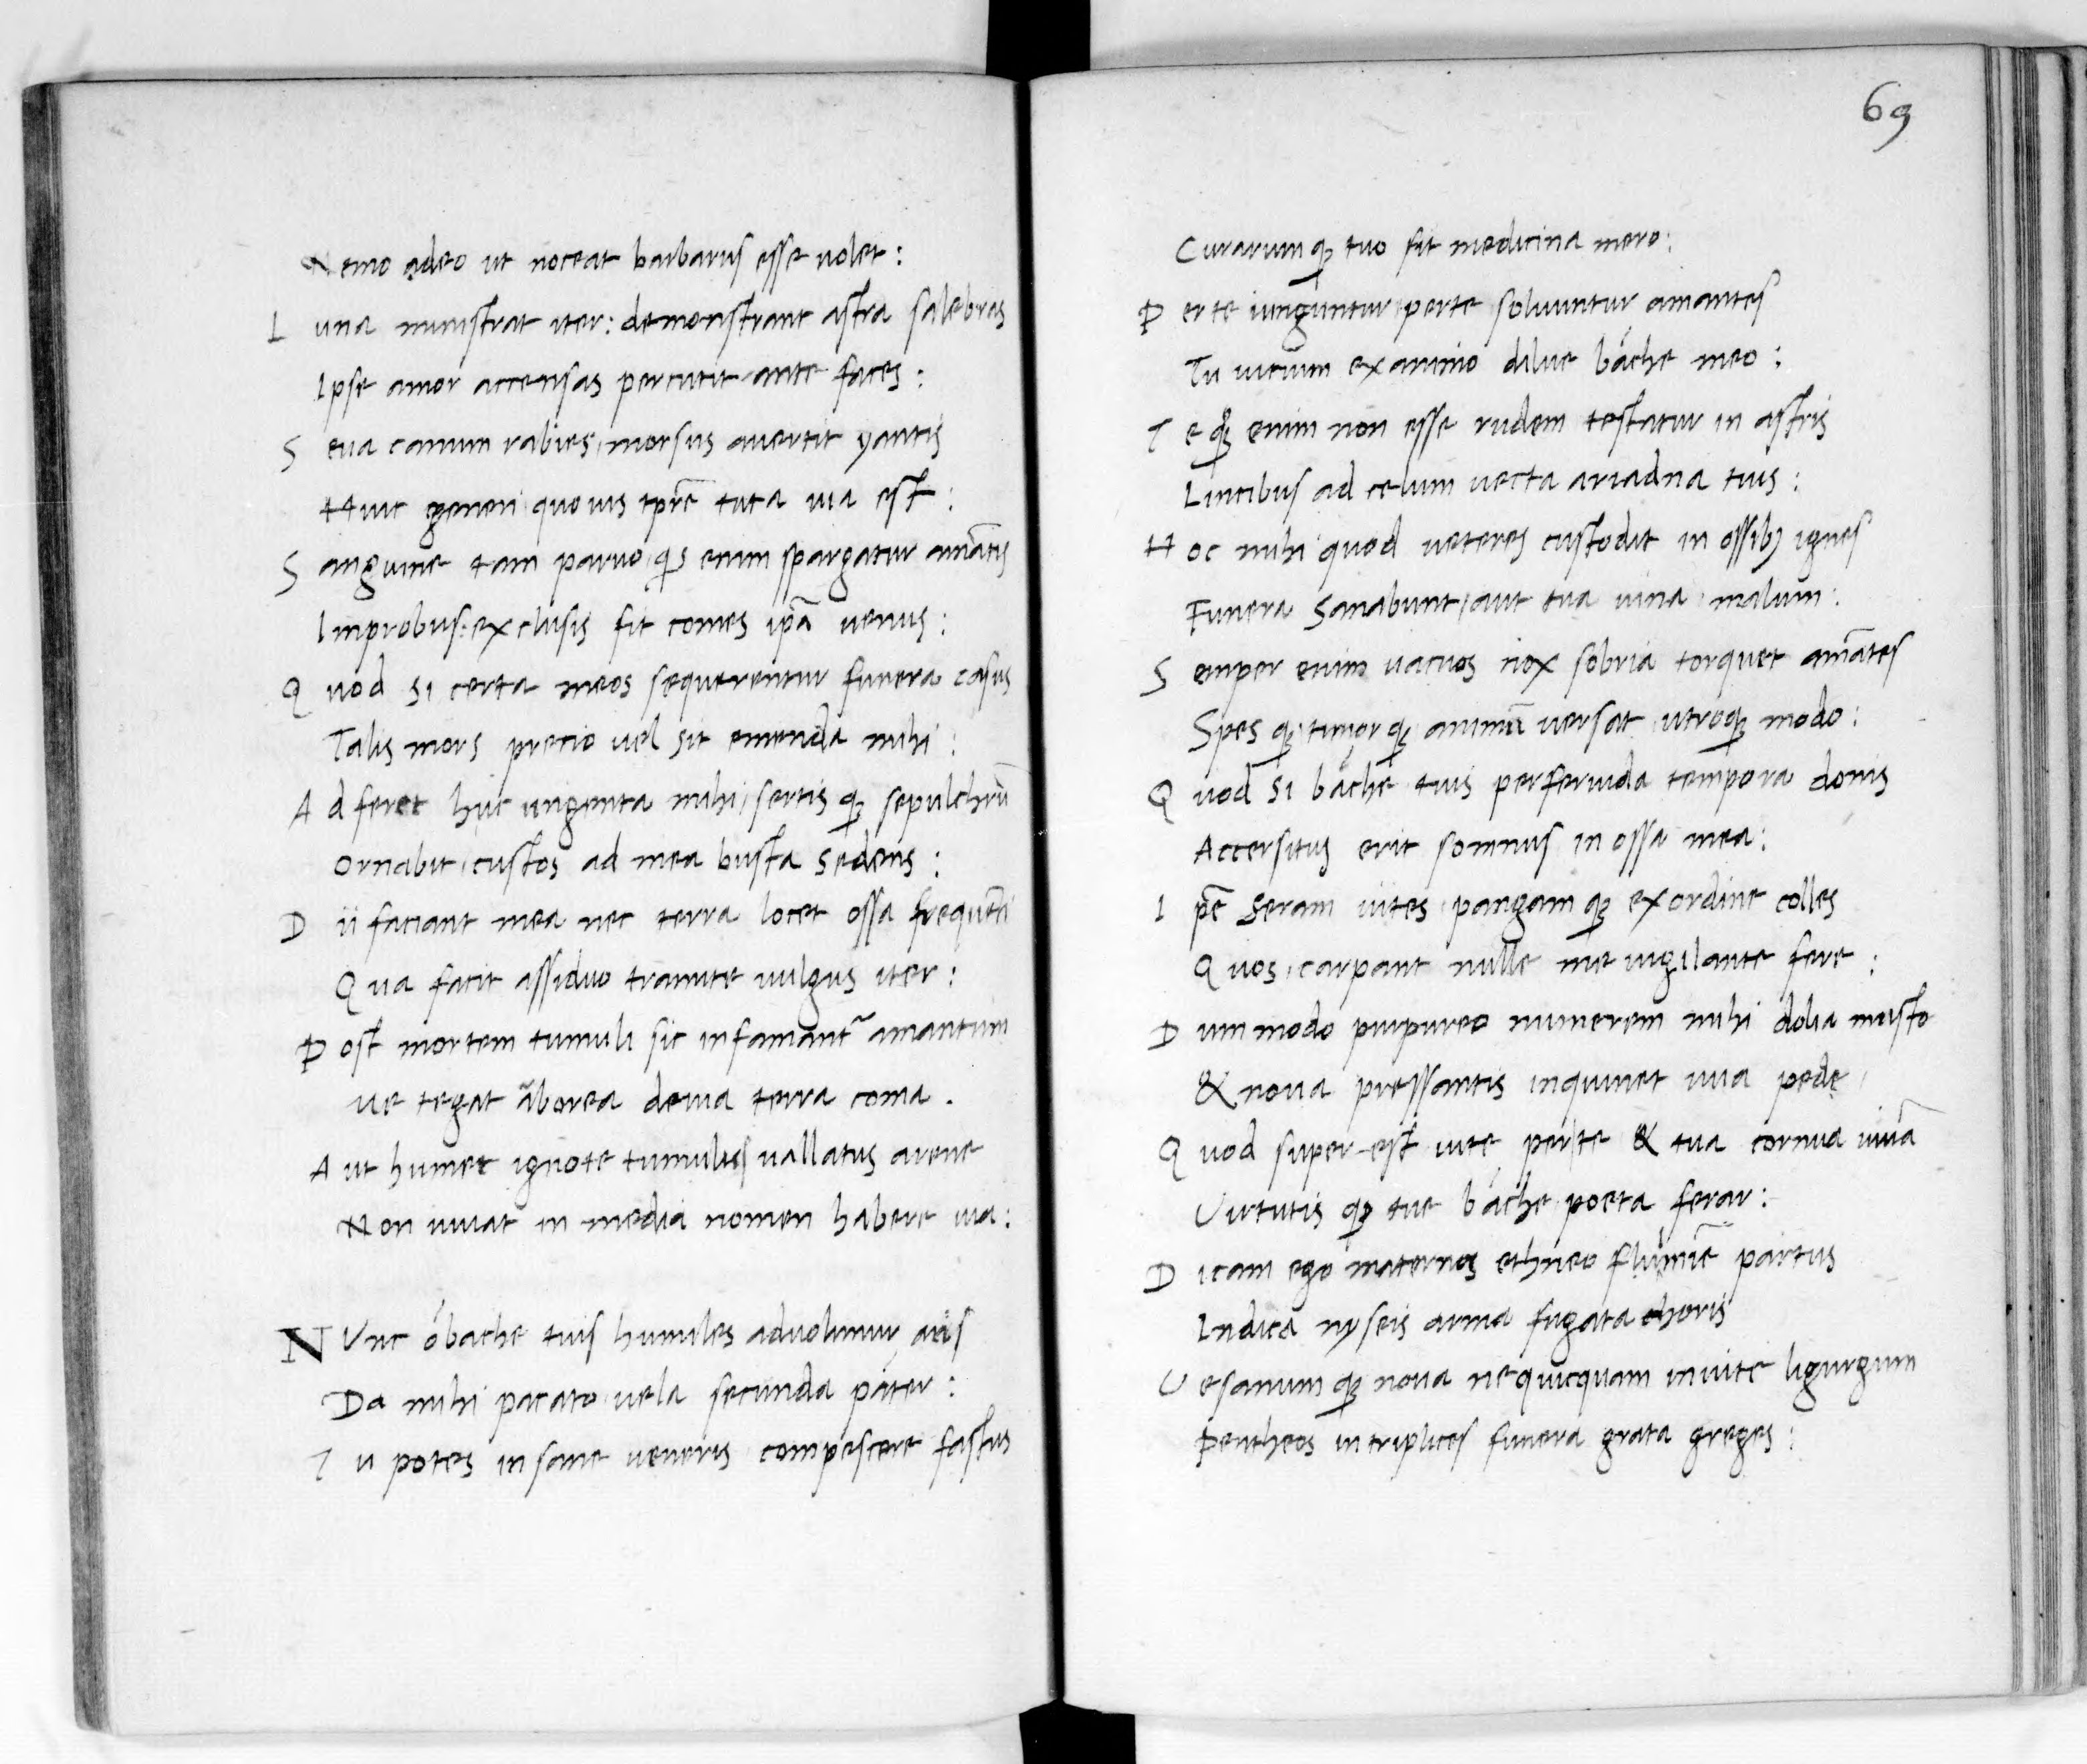 Nemo adeo ut noceat barbarus esse uolet:
Luna ministrat iter: demonstrant astra salebras
Ipse amor accensas percutit ante faces:
Seua canum rabies, morsus auertit yantis
Huic generi quouis tpr̄e tuta uia est:
Sanguine tam paruo qs enim spargatur amātis
Improbus: exclusis fit comes ip̄a uenus:
Quod si certa meos sequerentur funera casus
Talis mors precio uel sit emenda mihi:
Adferet huc ungenta mihi, sertis qꝫ sepulchrū
Ornabit, custos ad mea busta sedens:
Dii faciant mea nec terra locet ossa frequēti
Qua facit assiduo tramite uulgus iter:
Post mortem tumuli sic infamant~ amantum
ue tegat ãborea deuia terra coma.
Aut humet ignote tumulus uallatus arene
Non iuuat in media nomen habere uia:
NUnc óbache tuis humiles aduolimur aris
Da mihi pacato uela secunda páter:
Tu potes insane ueneris compescere fastus
69
Curarumqꝫ tuo fit medicina mero:
Perte iunguntur perte soluuntur amantes
Tu uicium exanimo dilue báche meo:
Te qꝫ enim non esse rudem testatur in astris
Lincibus ad celum uecta ariadna tuis:
Hoc mihi quod ueteres custodit in ossibꝫ ignes
Funera sanabunt, aut tua uina malum:
Semper enim uacuos nox sobria torquet amātes
Spes qꝫ timor qꝫ animū uersat utroqꝫ modo:
Quod si báche tuis perferuida tempora donis
Accersitus erit somnus in ossa mea:
Ip̄e seram uites pangam qꝫ exordine colles
Quos, carpant nulle me uigilante fere:
Dum modo purpureo numerem mihi dolia musto
& noua pressantis inquinet uua pede
Quod super est uite perte & tua cornua uiuā
Uirtutis qꝫ tue báche poeta ferar:
Dicam ego maternos ethneo flumīe partus
Indica nyseis arma fugata choris
Uesanum qꝫ noua nequicquam inuite ligurgum
Pentheos intriplices funera grata greges: